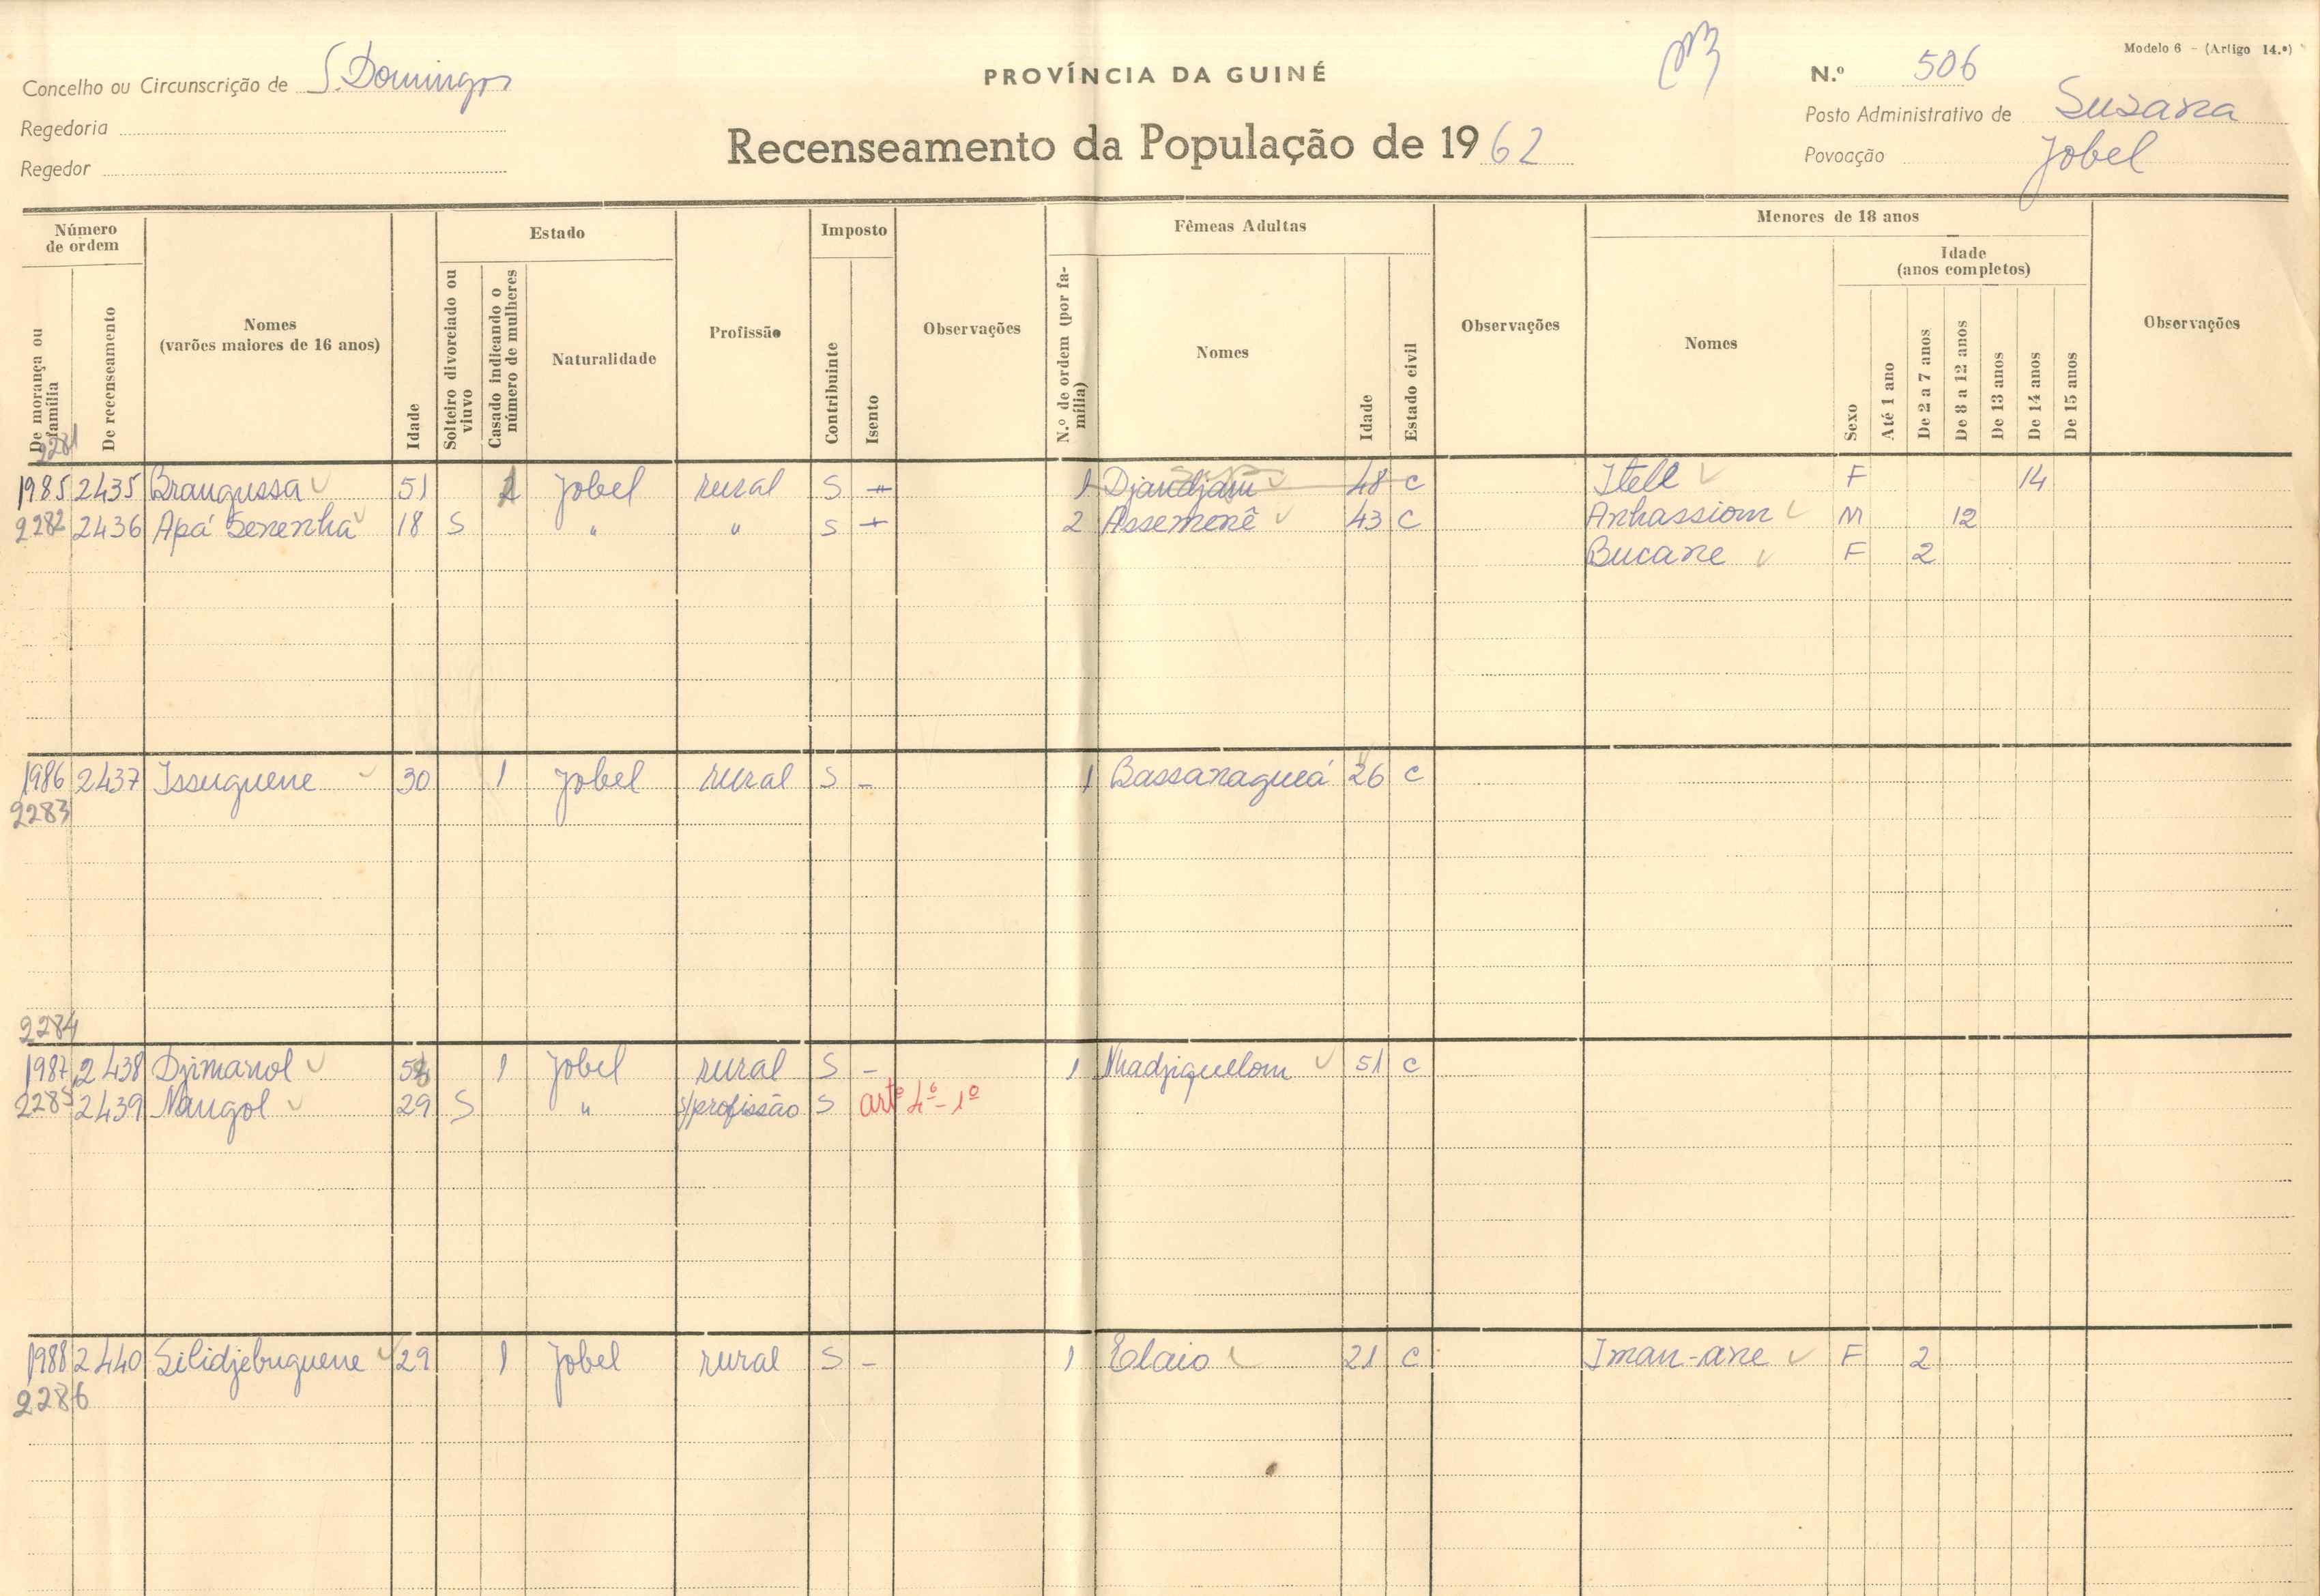 Modelo 6 - (Artigo 14.º)
Concelho ou Circunscrição de S. Domingos
PROVÍNCIA DA GUINÉ
N.º 506
Regedoria
Posto Administrativo de Suzana
Recenseamento da População de 1962
Regedor
Povoação Jobel
Número de ordem
Estado
Imposto
Fêmeas Adultas
Menores de 18 anos
Idade (anos completos)
De morança ou família
De recenseamento
Nomes (varões maiores de 16 anos)
Idade
Solteiro divorciado ou viuvo
Casado indicando o número de mulheres
Naturalidade
Profissão
Contribuinte
Isento
Observações
N.º de ordem (por família)
Nomes
Idade
Estado civil
Observações
Nomes
Sexo
Até 1 ano
De 2 a 7 anos
De 8 a 12 anos
De 13 anos
De 14 anos
De 15 anos
Observações
2281
1985 2435 Brangussa 51 Jobel rural S - 1 Djandjam 48 C Itell F 14
2282 2436 Apá Senenha 18 S " " S - 2 Assemenê 43 C Anhassiom M 12
Bucane F 2
1986 2437 Issuguene 30 1 Jobel rural S - 1 Bassanaguiá 26 C
2283
2284
1987 2438 Djimanol 1 Jobel rural S - 1 Nhadjiquelom 51 C
2285 2439 Nangol 29 S " s/profissão S artº 4º-1º
1988 2440 Silidjebuguene 29 1 Jobel rural S - 1 Elaio 21 C Iman-ane F 2
2286